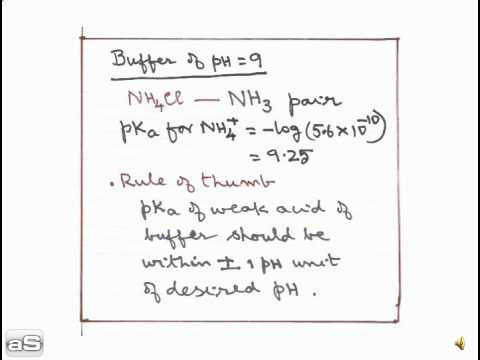 Buffer of pH = 9
NH₄Cl — NH₃ pair
pKa for NH₄⁺ = -log(5.6 × 10⁻¹⁰)
= 9.25
• Rule of thumb
pKa of weak acid of
buffer should be
within ± 1 pH unit
of desired pH.
aS